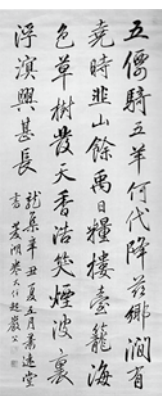 五僊騎五羊何代降茲鄉澗有
堯時韭山餘禹日糧樓臺籠海
色草樹發天香浩笑煙波裏
浮溟興甚長
龍集辛丑夏五月
書